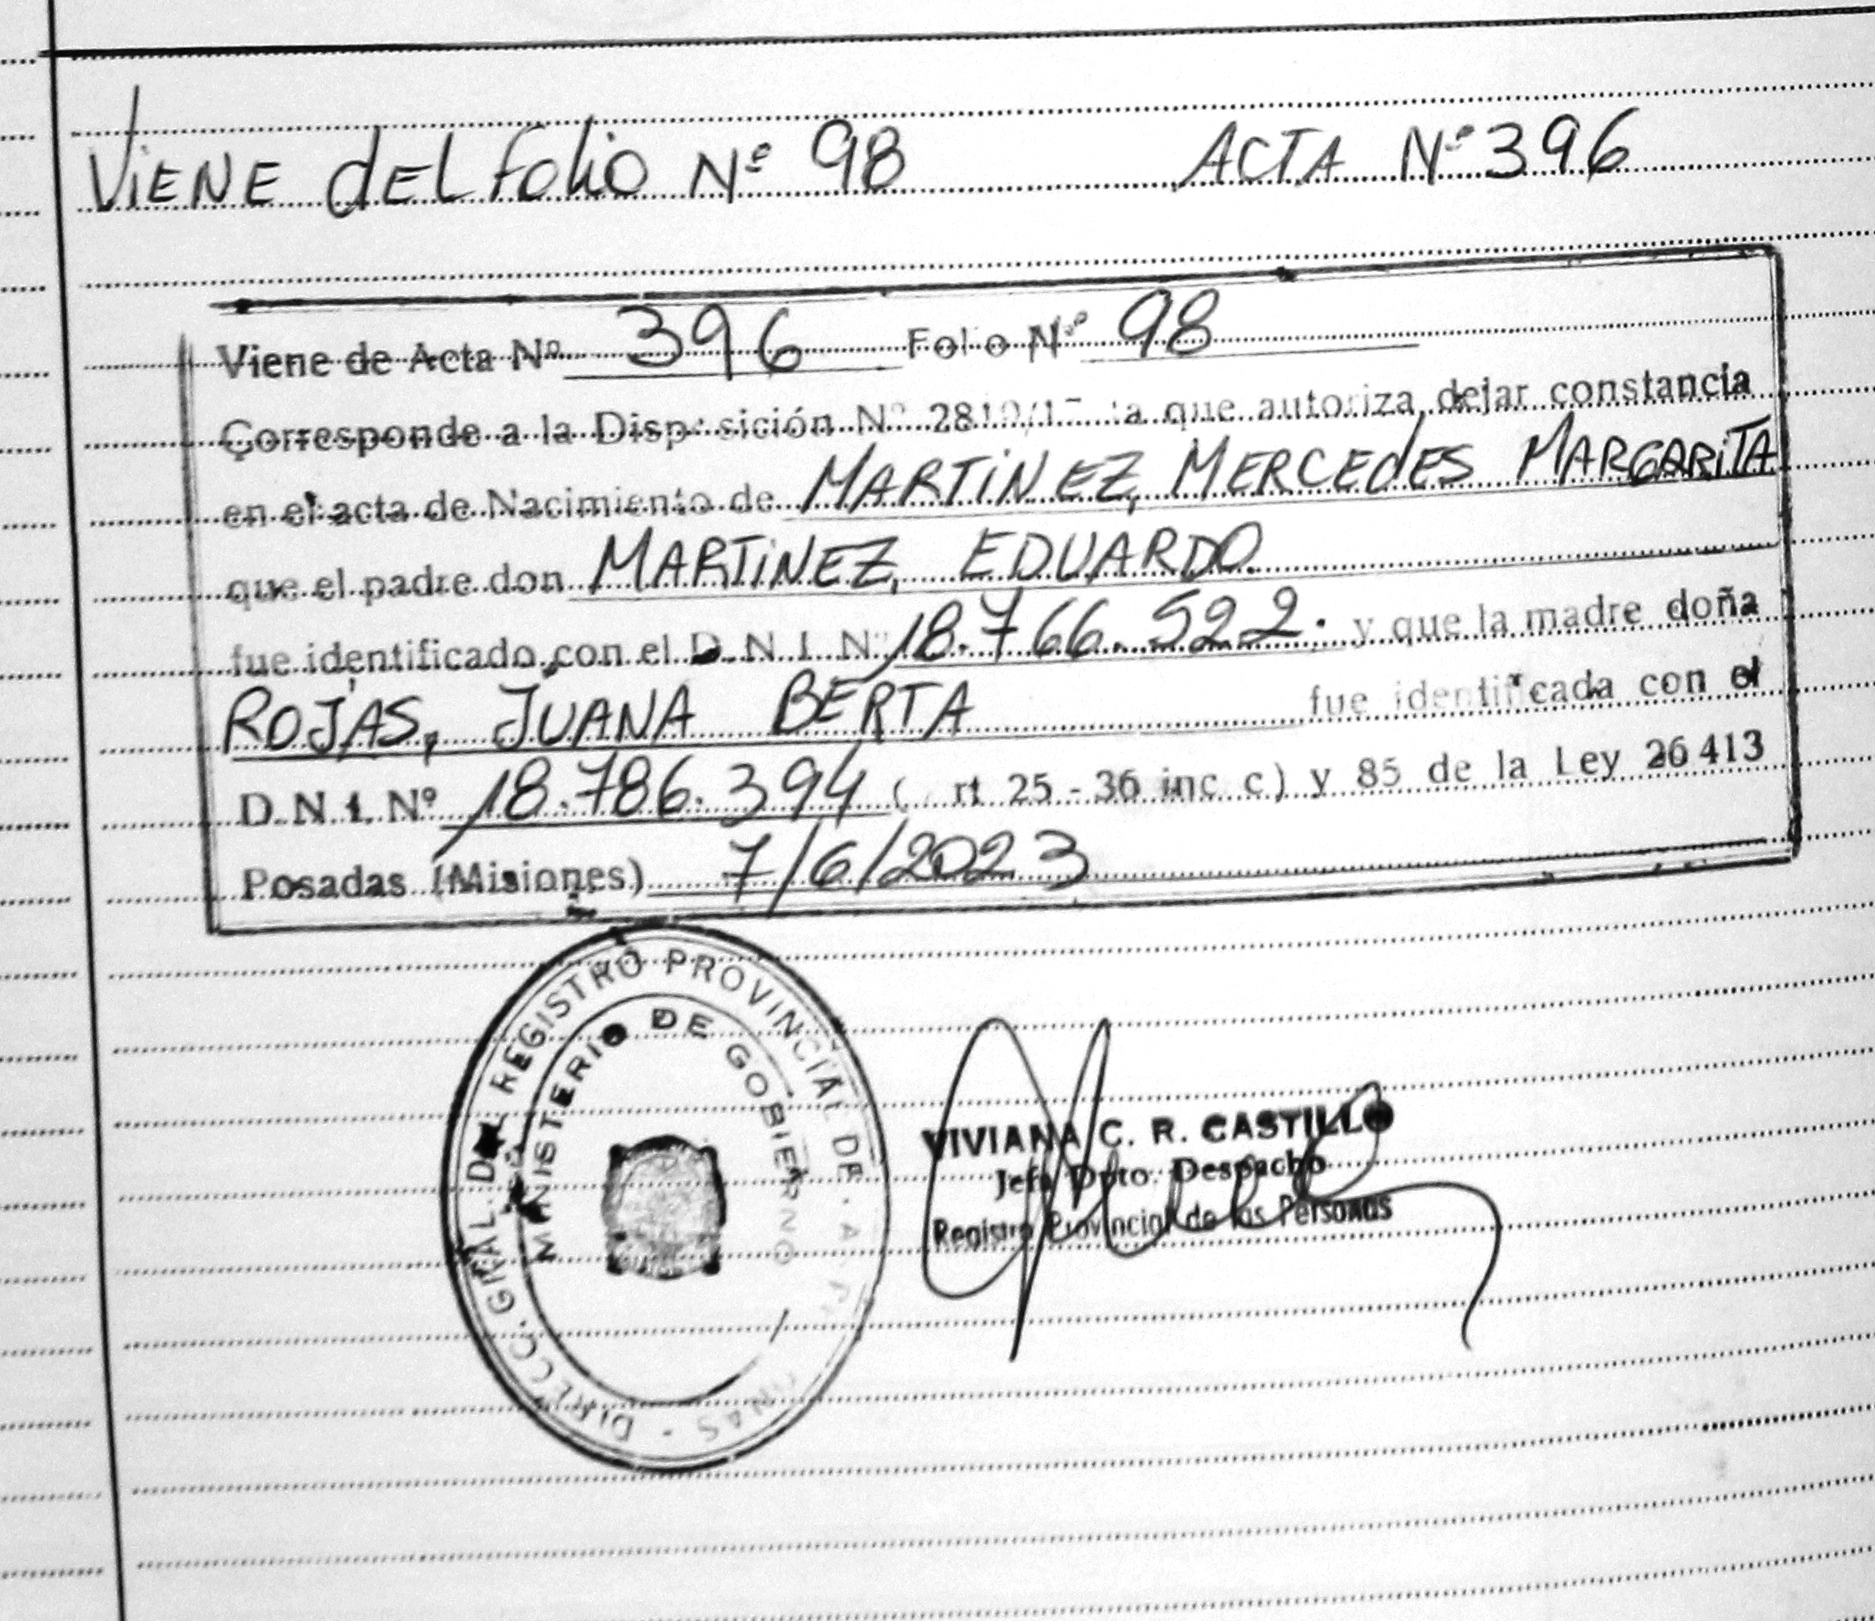 Viene del folio Nº 98 Acta Nº 396
Viene de Acta Nº 396 Folio Nº 98
Corresponde a la Disposición Nº 2810/17 la que autoriza dejar constancia
en el acta de Nacimiento de MARTINEZ, MERCEDES MARGARITA
que el padre don MARTINEZ, EDUARDO
fue identificado con el D.N.I. Nº 18.766.522. y que la madre doña
ROJAS, JUANA BERTA fue identificada con el
D.N.I. Nº 18.786.394 ( rt 25 - 36 inc c) y 85 de la Ley 26413
Posadas (Misiones) 7/6/2023
DIRECC. GRAL. DEL REGISTRO PROVINCIAL DE
MINISTERIO DE GOBIERNO
VIVIANA C. R. CASTILLO
Jefa Dpto. Despacho
Registro Provincial de las Personas